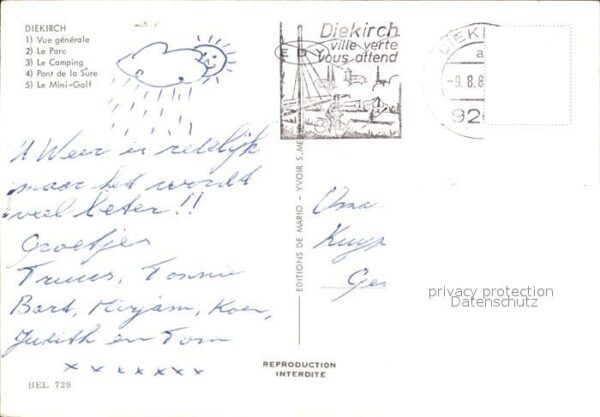 DIEKIRCH
1) Vue générale
2) Le Parc
3) Le Camping
4) Pont de la Sûre
5) Le Mini-Golf
't Weer is redelijk
maar het wordt
veel beter!!
Groetjes
Truus, Tonnie
Bart, Mirjam, Koen,
Judith en Tom
x x x x x x x
BEL 729
Diekirch
ville verte
vous attend
DIEKI
-9.8.8
92
EDITIONS DE MARIO - YVOIR S. ME
Oma
Kuyp
Ge
privacy protection
Datenschutz
REPRODUCTION
INTERDITE